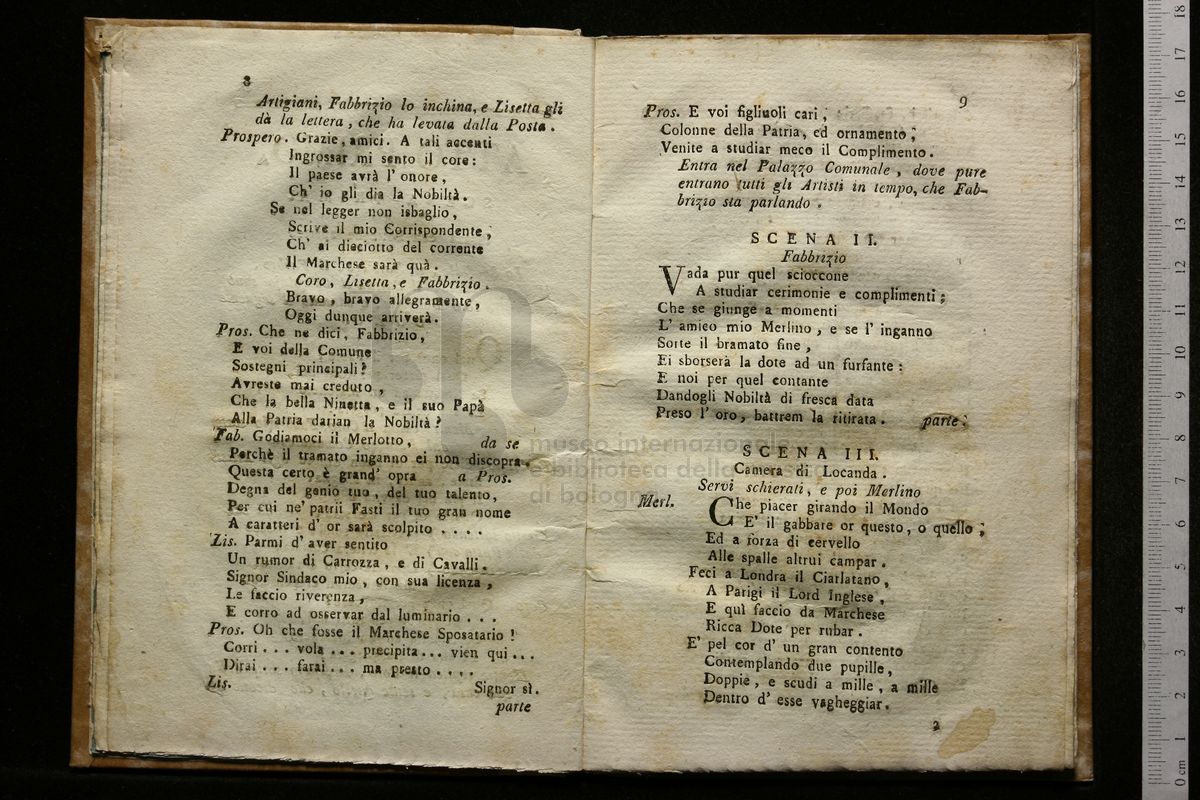 8
Artigiani, Fabbrizio lo inchina, e Lisetta gli
dà la lettera, che ha levata dalla Posta.
Prospero. Grazie, amici. A tali accenti
Ingrossar mi sento il core:
Il paese avrà l' onore,
Ch' io gli dia la Nobiltà.
Se nel legger non isbaglio,
Scrive il mio Corrispondente,
Ch' ai dieciotto del corrente
Il Marchese sarà quà.
Coro, Lisetta, e Fabbrizio.
Bravo, bravo allegramente,
Oggi dunque arriverà.
Pros. Che ne dici, Fabbrizio,
E voi della Comune
Sostegni principali?
Avreste mai creduto,
Che la bella Ninetta, e il suo Papà
Alla Patria darian la Nobiltà?
Fab. Godiamoci il Merlotto, da se
Perchè il tramato inganno ei non discopra.
Questa certo è grand' opra a Pros.
Degna del genio tuo, del tuo talento,
Per cui ne' patrii Fasti il tuo gran nome
A caratteri d' or sarà scolpito . . . .
Lis. Parmi d' aver sentito
Un rumor di Carrozza, e di Cavalli.
Signor Sindaco mio, con sua licenza,
Le faccio riverenza,
E corro ad osservar dal luminario . . .
Pros. Oh che fosse il Marchese Sposatario!
Corri . . . vola . . . precipita . . . vien qui . . .
Dirai . . . farai . . . ma presto . . . .
Lis. Signor sì.
parte
9
Pros. E voi figliuoli cari,
Colonne della Patria, ed ornamento;
Venite a studiar meco il Complimento.
Entra nel Palazzo Comunale, dove pure
entrano tutti gli Artisti in tempo, che Fab-
brizio sta parlando.
SCENA II.
Fabbrizio
Vada pur quel scioccone
A studiar cerimonie e complimenti;
Che se giunge a momenti
L' amico mio Merlino, e se l' inganno
Sorte il bramato fine,
Ei sborserà la dote ad un furfante:
E noi per quel contante
Dandogli Nobiltà di fresca data
Preso l' oro, battrem la ritirata. parte.
SCENA III.
Camera di Locanda.
Servi schierati, e poi Merlino
Merl. Che piacer girando il Mondo
E' il gabbare or questo, o quello;
Ed a forza di cervello
Alle spalle altrui campar.
Feci a Londra il Ciarlatano,
A Parigi il Lord Inglese,
E quì faccio da Marchese
Ricca Dote per rubar.
E' pel cor d' un gran contento
Contemplando due pupille,
Doppie, e scudi a mille, a mille
Dentro d' esse vagheggiar.
2
museo internazionale
e biblioteca della
di bologna
0 cm 1 2 3 4 5 6 7 8 9 10 11 12 13 14 15 16 17 18